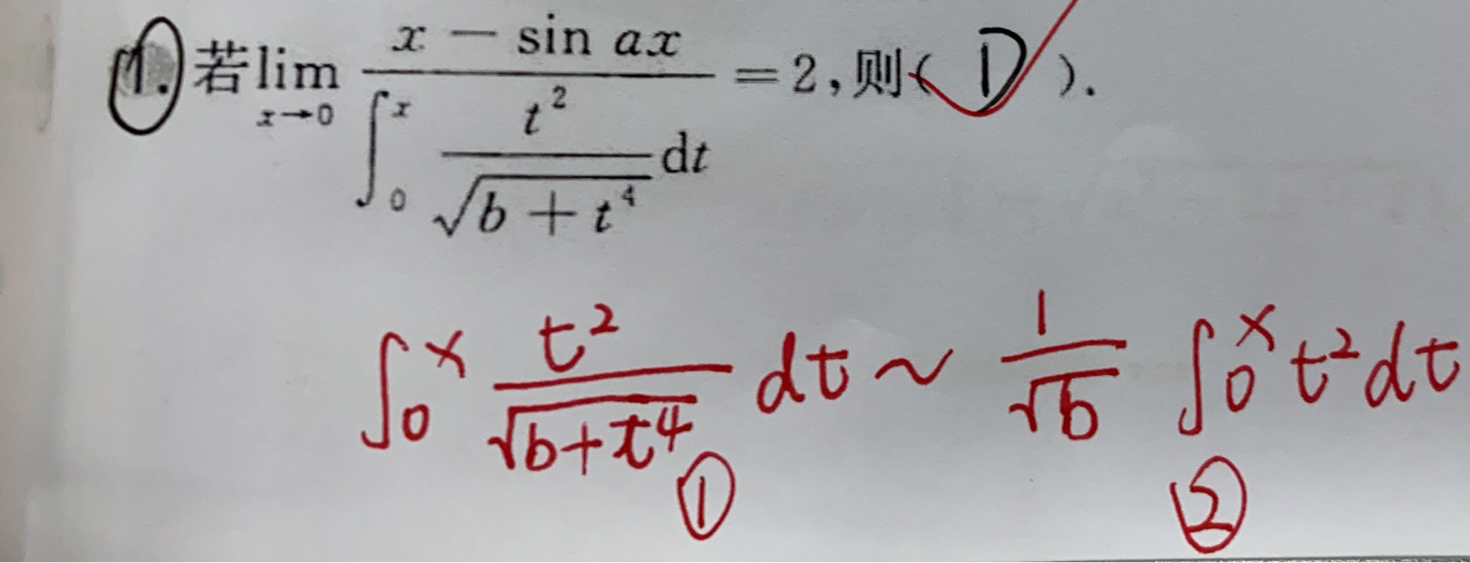 1. 若 lim_{x→0} \frac{x - \sin ax}{\int_0^x \frac{t^2}{\sqrt{b+t^4}} dt} = 2, 则( D ).
\int_0^x \frac{t^2}{\sqrt{b+t^4}} dt ~ \frac{1}{\sqrt{b}} \int_0^x t^2 dt
① ②